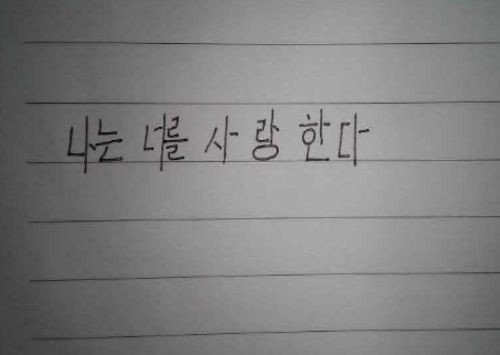 나는 너를 사랑 한다